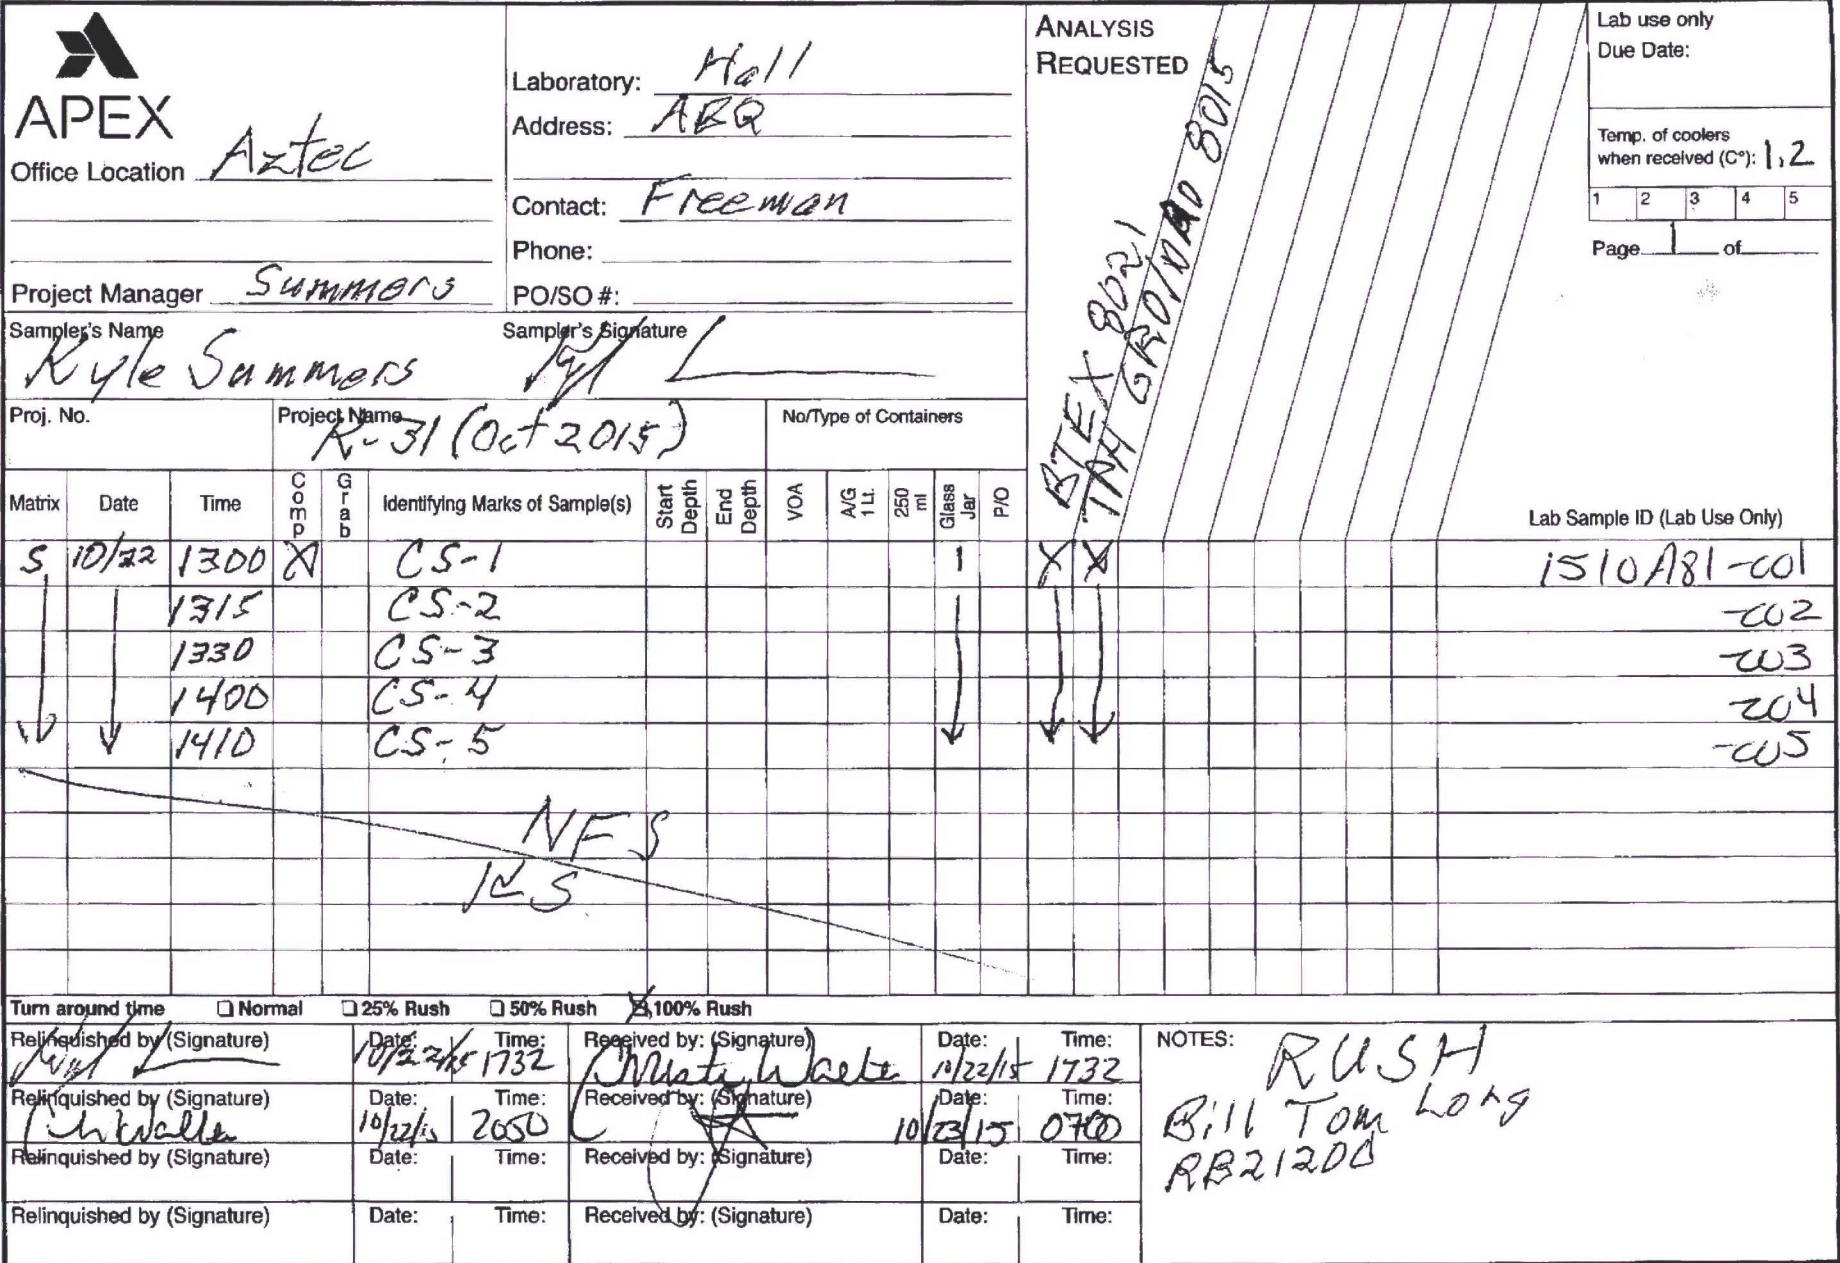 APEX
Office Location Aztec
Project Manager Summers
Laboratory: Hall
Address: ABQ
Contact: Freeman
Phone:
PO/SO #:
ANALYSIS
REQUESTED
BTEX 8021
TPH GRO/DRO 8015
Lab use only
Due Date:
Temp. of coolers
when received (C°): 1.2
1 2 3 4 5
Page 1 of
Sampler's Name
Kyle Summers
Sampler's Signature
Proj. No.
Project Name
K-31 (Oct 2015)
No/Type of Containers
Matrix Date Time Comp Grab Identifying Marks of Sample(s) Start Depth End Depth VOA A/G 1 Lt. 250 ml Glass Jar P/O Lab Sample ID (Lab Use Only)
S 10/22 1300 X CS-1 1 X X 1510A81-001
1315 CS-2 -002
1330 CS-3 -003
1400 CS-4 -004
1410 CS-5 -005
NFS
KS
Turn around time Normal 25% Rush 50% Rush X 100% Rush
Relinquished by (Signature) Date: 10/22/15 Time: 1732 Received by: (Signature) Christi Waeter Date: 10/22/15 Time: 1732
Relinquished by (Signature) Date: 10/22/15 Time: 2050 Received by: (Signature) Date: 10/23/15 Time: 0700
Relinquished by (Signature) Date: Time: Received by: (Signature) Date: Time:
Relinquished by (Signature) Date: Time: Received by: (Signature) Date: Time:
NOTES: RUSH
Bill Tom Long
RB21200